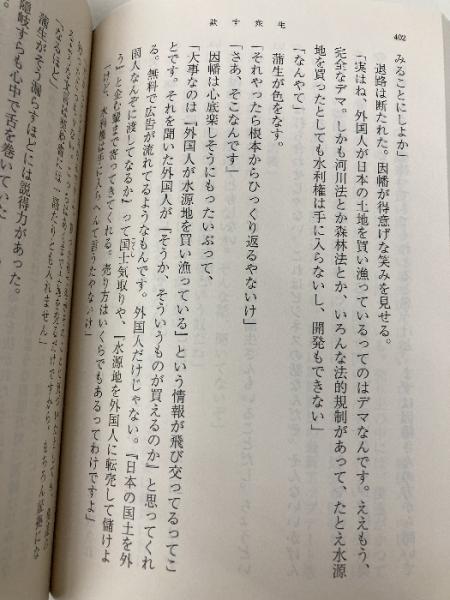 欺す衆生
402
みることにしよか」
　退路は断たれた。因幡が得意げな笑みを見せる。
「実はね、外国人が日本の土地を買い漁っているってのはデマなんです。ええもう、
完全なデマ。しかも河川法とか森林法とか、いろんな法的規制があって、たとえ水源
地を買ったとしても水利権は手に入らないし、開発もできない」
「なんやて」
　蒲生が色をなす。
「それやったら根本からひっくり返るやないけ」
「さあ、そこなんです」
　因幡は心底楽しそうにもったいぶって、
「大事なのは『外国人が水源地を買い漁っている』という情報が飛び交ってるってこ
とです。それを聞いた外国人が『そうか、そういうものが買えるのか』と思ってくれ
る。無料で広告が流れてるようなもんです。外国人だけじゃない。『日本の国土を外
国人なんぞに渡してなるか』って国士気取りや、『水源地を外国人に転売して儲けよ
う』と企む輩まで寄ってきてくれる。売り方はいくらでもあるってわけですよ」
「けど、水利権は手に入らへんて言うたやないけ」
「なるほど」
　蒲生がそう漏らすほどには説得力があった。
隠岐すらも心中で舌を巻いていた